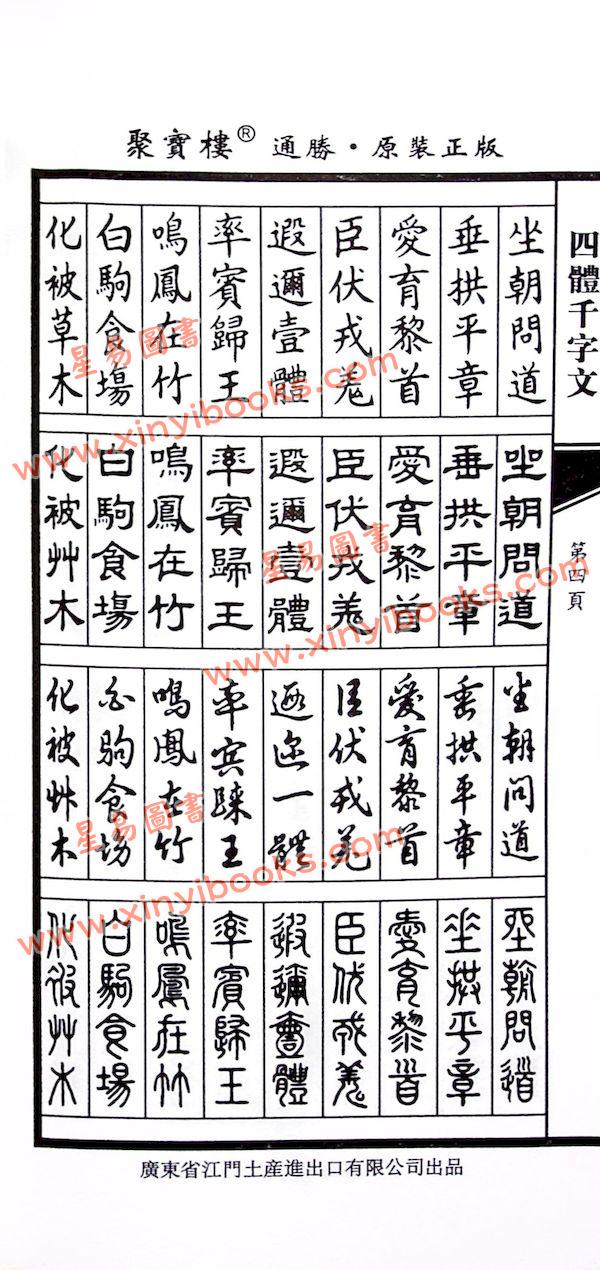 聚寶樓® 通勝・原裝正版
四體千字文
第四頁
坐朝問道
垂拱平章
愛育黎首
臣伏戎羌
遐邇壹體
率賓歸王
鳴鳳在竹
白駒食塲
化被草木
坐朝問道
垂拱平章
愛育黎首
臣伏戎羌
遐邇壹體
率賓歸王
鳴鳳在竹
白駒食塲
化被艸木
坐朝問道
垂拱平章
愛育黎首
臣伏戎羌
遐迩一體
率賓歸王
鳴鳳在竹
白駒食場
化被艸木
坐朝問道
垂拱平章
愛育黎首
臣伏戎羌
遐邇壹體
率賓歸王
鳴鳳在竹
白駒食場
化被艸木
廣東省江門土産進出口有限公司出品
星易圖書
www.xinyibooks.com
星易圖書
www.xinyibooks.com
星易圖書
www.xinyibooks.com